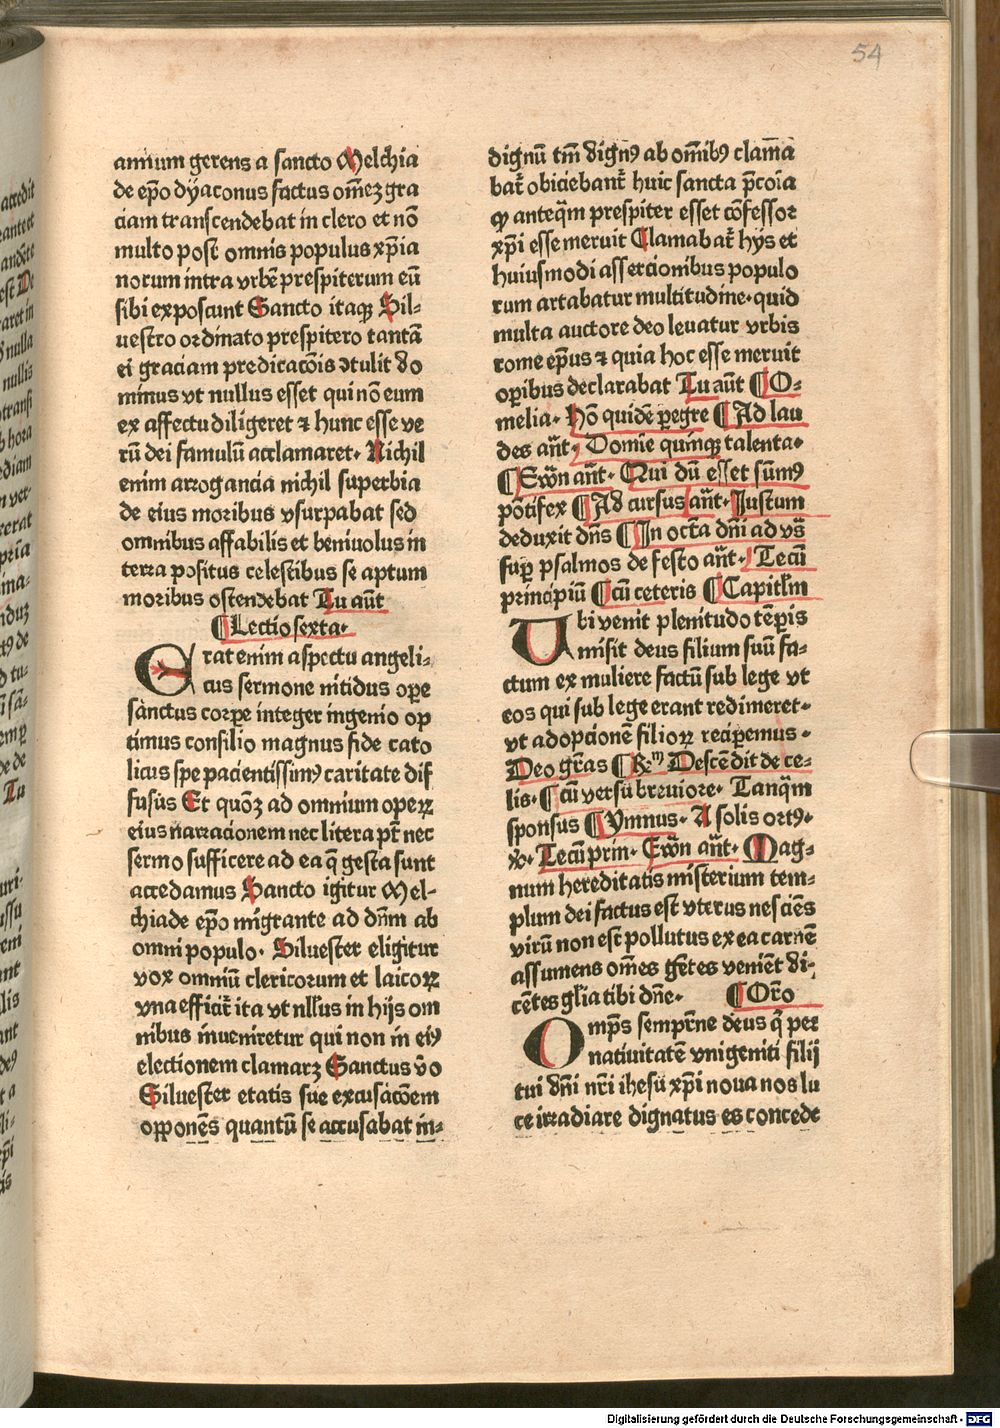 54
amium gerens a sancto Melchia
de ep̄o dyaconus factus om̄ez gra
ciam transcendebat in clero et nō
multo post omnis populus xp̄ia
norum intra vrbē prespiterum eū
sibi exposcunt Sancto itaqꝫ Sil⸗
uestro ordinato prespitero tantā
ei graciam predicacōis ↄtulit do
minus vt nullus esset qui nō eum
ex affectu diligeret ⁊ hunc esse ve
rū dei famulū acclamaret. Nichil
enim arrogancia nichil superbia
de eius moribus vsurpabat sed
omnibus affabilis et beniuolus in
terra positus celestibus se aptum
moribus ostendebat Tu aūt
¶ Lectio sexta.
Erat enim aspectu angeli⸗
cus sermone nitidus oꝑe
sanctus corꝑe integer ingenio op
timus consilio magnus fide cato
licus spe pacientissimꝰ caritate dif
fusus Et quōꝫ ad omnium operꝝ
eius narracionem nec litera pt̄ nec
sermo sufficere ad ea q̄ gesta sunt
accedamus Sancto igitur Mel⸗
chiade ep̄o migrante ad dn̄m ab
omni populo. Siluester eligitur
vox omniū clericorum et laicoꝝ
vna efficit̄ ita vt nllus in hijs om
nibus inueniretur qui non in eiꝰ
electionem clamarꝫ Sanctus v̄o
Siluester etatis sue excusacōem
opponēs quantū se accusabat in⸗
dignū tm̄ dignꝰ ab om̄ibꝰ clama
bat̄ obiciebant̄ huic sancta p̄coīa
ꝙ anteqm̄ prespiter esset cōfessor
xp̄i esse meruit Clamabat̄ hijs et
huiusmodi assercionibus populo
rum artabatur multitudine. quid
multa auctore deo leuatur vrbis
rome ep̄us ⁊ quia hoc esse meruit
oꝑibus declarabat Tu aūt ¶ O⸗
melia. Hō quidē ꝑegre ¶ Ad lau
des an̄t. Domīe quinqꝫ talenta.
¶ Ewn̄ an̄t. Qui dū esset sūmꝰ
pōtifex ¶ Ad cursus an̄t. Justum
deduxit dn̄s ¶ In octa dn̄i ad vs̄
suꝑ psalmos de festo an̄t. Tecū
principiū ¶ cū ceteris ¶ Capitlm̄
Ubi venit plenitudo tēꝑis
misit deus filium suū fa⸗
ctum ex muliere factū sub lege vt
eos qui sub lege erant redimeret.
vt adopcionē filioꝝ reciꝑemus.
Deo gr̄as ¶ ℞m̄ Descēdit de ce⸗
lis. ¶ cū versu breuiore. Tanqm̄
sponsus ¶ Ymnus. A solis ortꝰ.
℣. Tecū prin. Ewn̄ an̄t. Mag⸗
num hereditatis misterium tem⸗
plum dei factus est vterus nesciēs
virū non est pollutus ex ea carnē
assumens om̄es gētes veniēt di⸗
cētes gl̄ia tibi dn̄e. ¶ Or̄o
Omp̄s semprn̄e deus q̄ per
natiuitatē vnigeniti filij
tui dn̄i nr̄i ihesu xp̄i noua nos lu
ce irradiare dignatus es concede
Digitalisierung gefördert durch die Deutsche Forschungsgemeinschaft - DFG